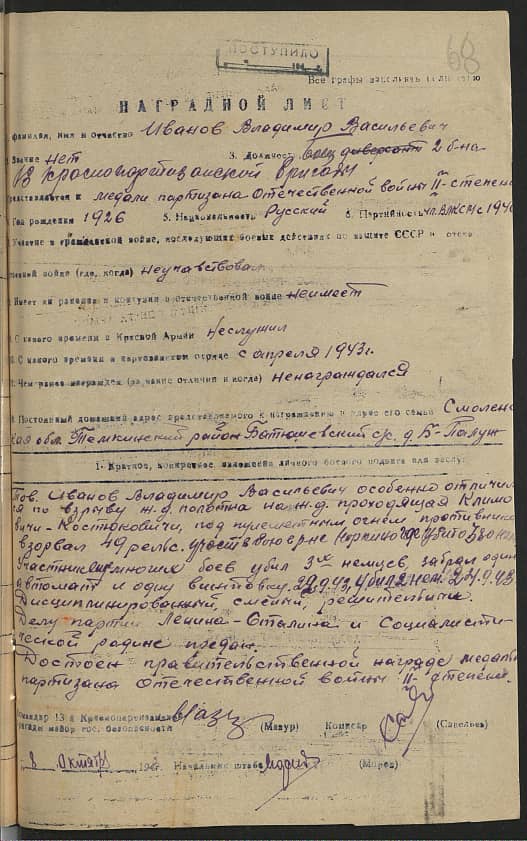 ПОСТУПИЛО
68
Все графы заполнять
НАГРАДНОЙ ЛИСТ
Фамилия, имя и отчество Иванов Владимир Васильевич
Звание нет 3. Должность боец диверсант 2 б-на
13 Краснопартизанской бригады
представляется к медали партизана Отечественной войны II-степени
Год рождения 1926 5. Национальность Русский 6. Партийность чл. ВЛКСМ с 1940
Участие в гражданской войне, последующих боевых действиях по защите СССР и отече
ственной войне (где, когда) неучавствовал
Имеет ли ранения и контузии в отечественной войне неимеет
С какого времени в Красной Армии неслужил
С какого времени в партизанском отряде с апреля 1943 г.
Чем ранее награжден (за какие отличия и когда) ненаграждался
Постоянный домашний адрес представляемого к награждению и адрес его семьи Смоленс
кая обл. Темкинский район Батюшевский с/с. д. Б-Палуж
1. Краткое, конкретное изложение личного боевого подвига или заслуг
Тов. Иванов Владимир Васильевич особенно отличил
ся по взрыву ж.д. полотна на ж.д. проходящая Климо
вичи-Костюковичи, под пулеметным огнем противника
взорвал 49 рельс. участвовал
Участник многих боев убил 3х немцев, забрал один
автомат и одну винтовку.
Дисциплинированный, смелый, решительный.
Делу партии Ленина-Сталина и Социалисти-
ческой родине предан.
Достоен правительственной награде медаль
партизана отечественной войны II-степени.
Командир 13й Краснопартизанской
бригады майор гос. безопасности (Мазур) Комиссар (Савельев)
8 Октября 194 г. Начальник штаба (Мороз)